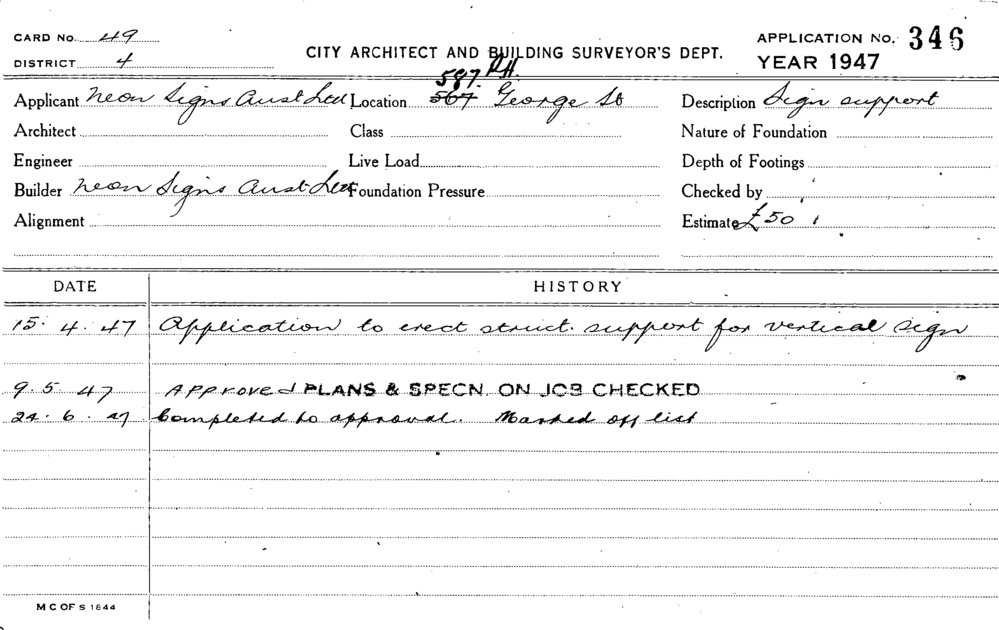 CARD No. 49
DISTRICT 4
CITY ARCHITECT AND BUILDING SURVEYOR'S DEPT.
APPLICATION No. 346
YEAR 1947
587. P.H.
Applicant Neon Signs Aust Ltd Location 567 George St Description Sign support
Architect Class Nature of Foundation
Engineer Live Load Depth of Footings
Builder Neon Signs Aust Ltd Foundation Pressure Checked by
Alignment Estimate £50
DATE HISTORY
15. 4. 47 Application to erect struct. support for vertical sign
9. 5. 47 Approved PLANS & SPECN. ON JOB CHECKED
24. 6. 47 Completed to approval. Marked off list
M C OF S 1644